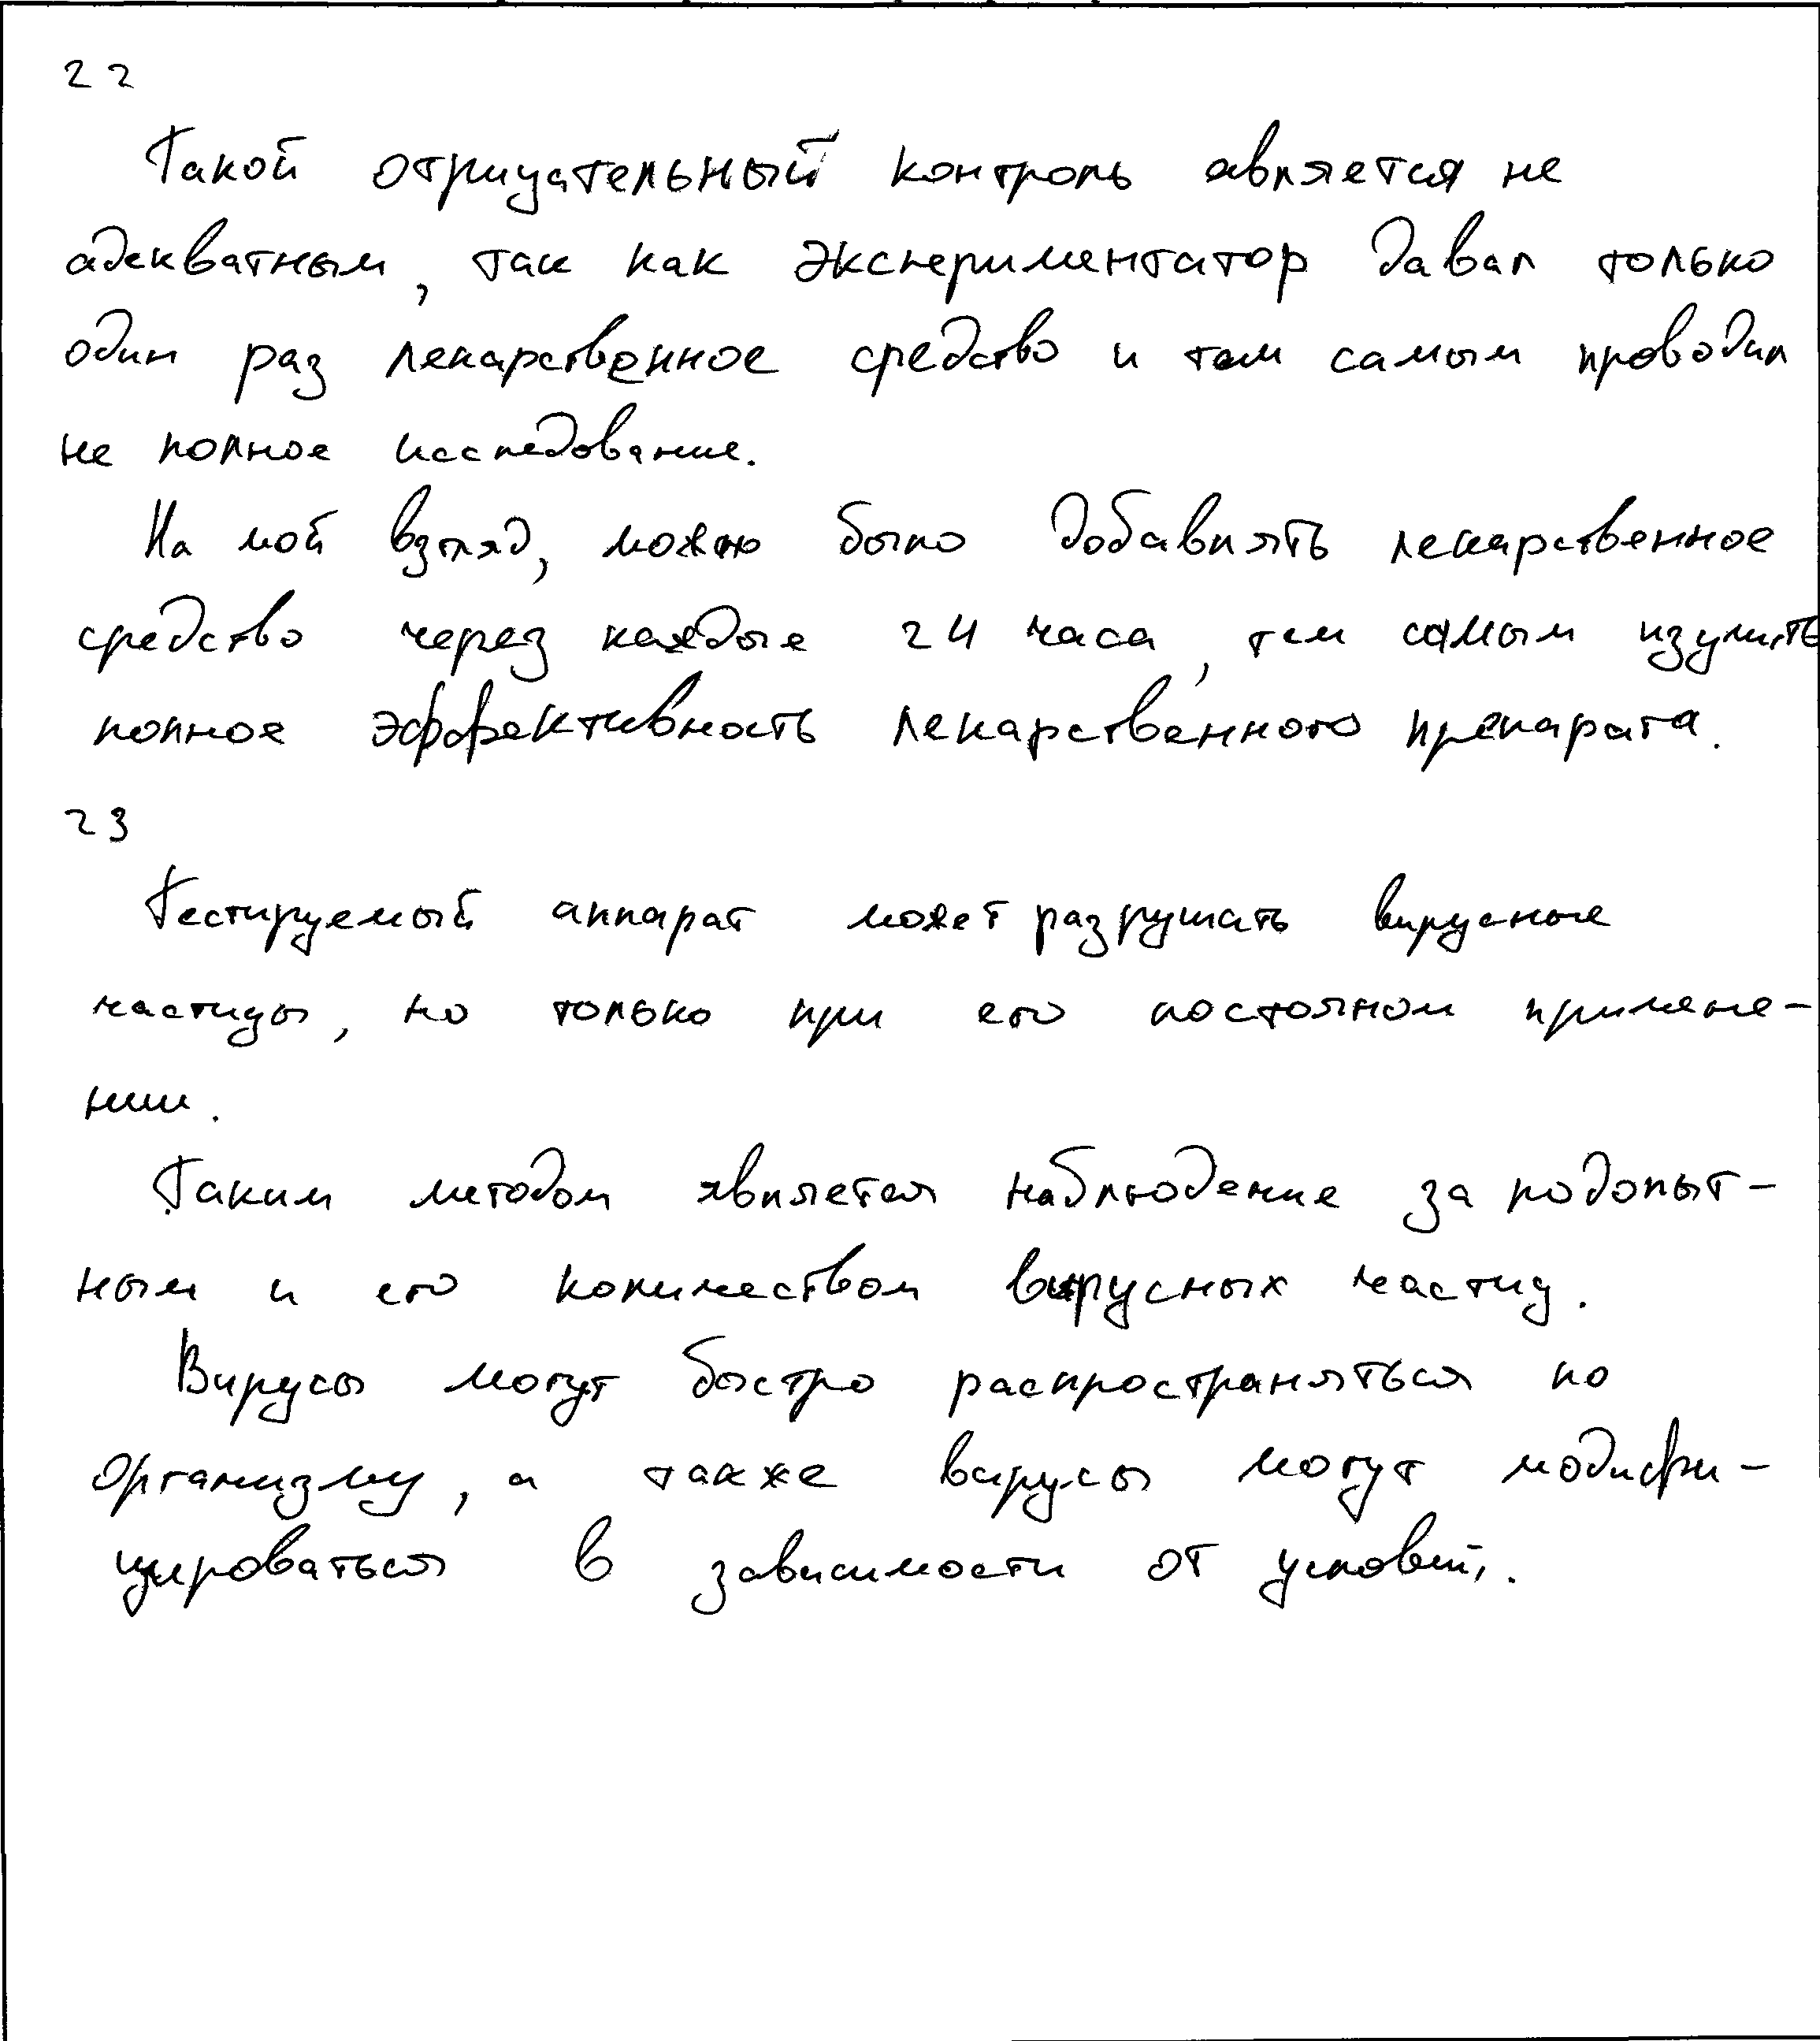 22
Такой отрицательный контроль является не
адекватным, так как экспериментатор давал только
один раз лекарственное средство и тем самым проводил
не полное исследование.
На мой взгляд, можно было добавлять лекарственное
средство через каждые 24 часа, тем самым изучить
полное эффективность лекарственного препарата.
23
Тестируемый аппарат может разрушать вирусные
частицы, но только при его постоянном примене-
нии.
Таким методом является наблюдение за подопыт-
ным и его количеством вирусных частиц.
Вирусы могут быстро распространяться по
организму, а также вирусы могут модифи-
цироваться в зависимости от условий.